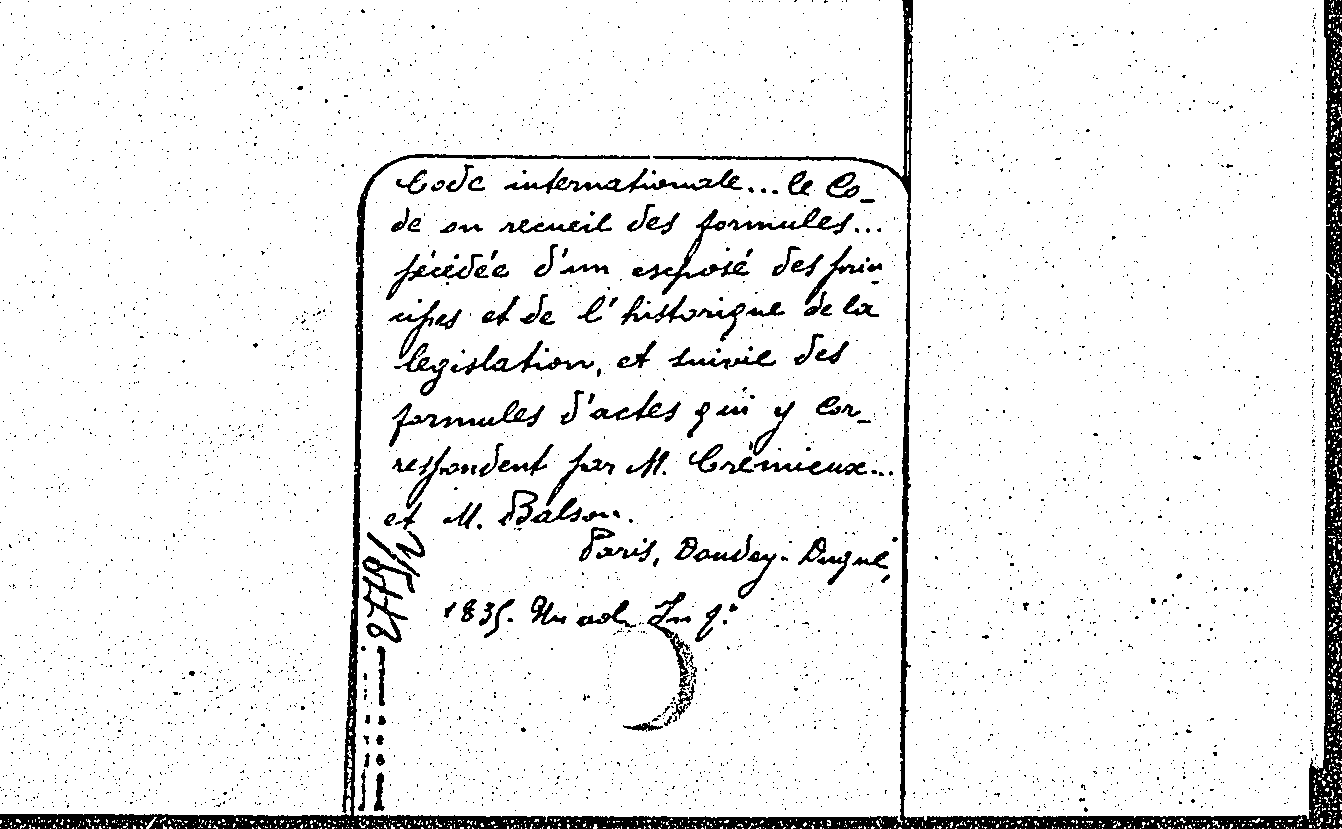 Code internationale... le Co-
de en recueil des formules...
précédée d'un exposé des prin-
cipes et de l'historique de la
legislation, et suivie des
formules d'actes qui y cor-
respondent par M. Crémieux...
et M. Balson.
Paris, Dondey-Dupré,
1835. Un vol. In